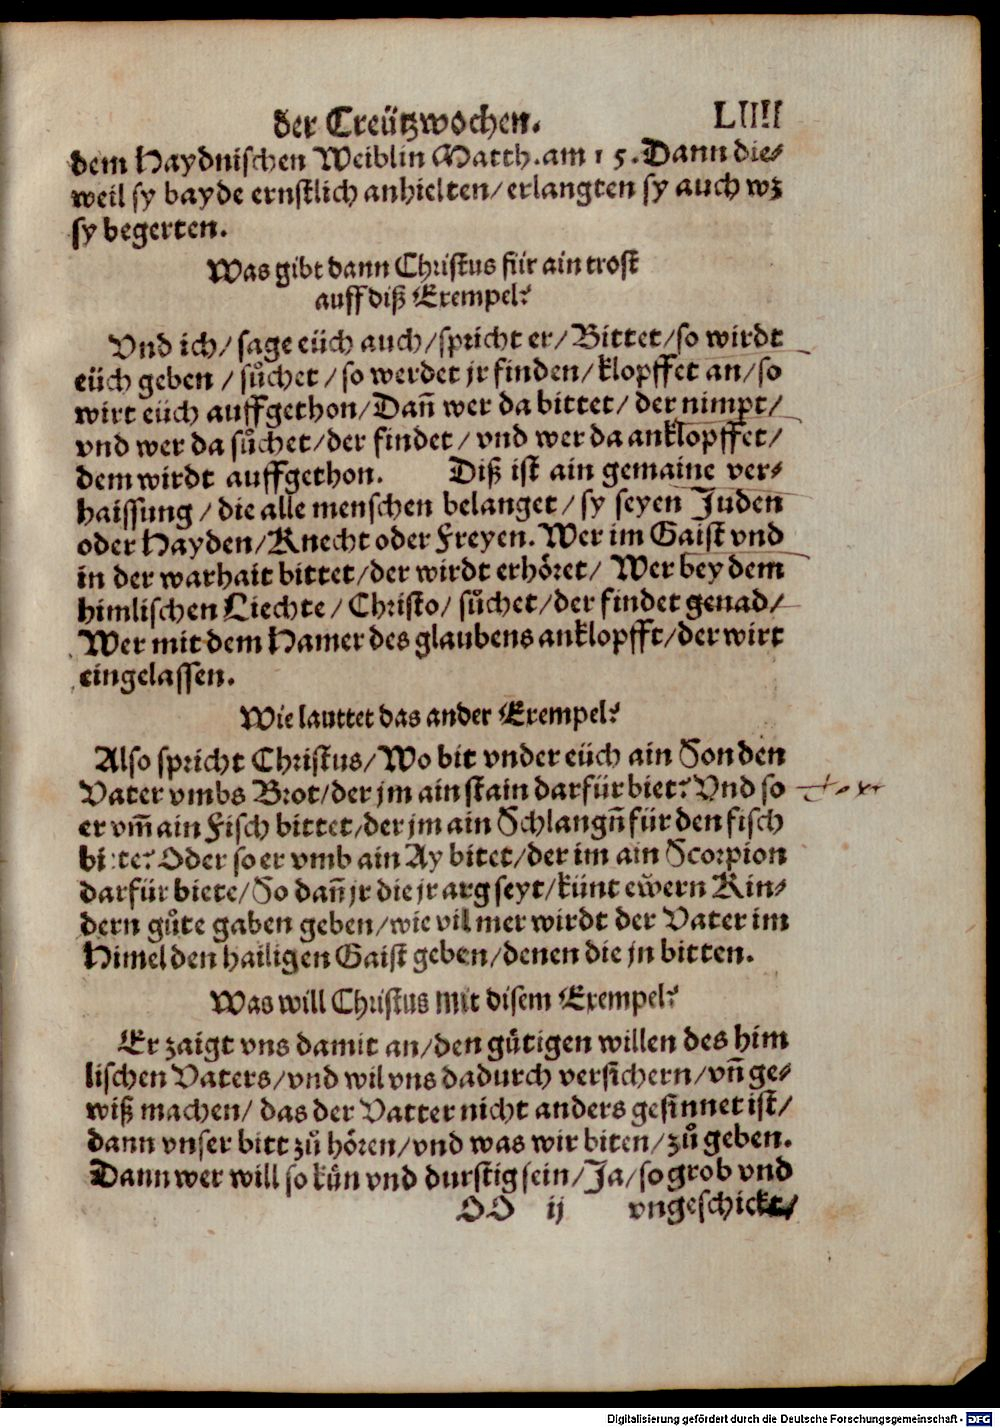 der Creützwochen. LIIII
dem Haydnischen Weiblin Matth. am 15. Dann die⸗
weil sy bayde ernstlich anhielten/ erlangten sy auch wz
sy begerten.
Was gibt dann Christus für ain trost
auff diß Exempel?
Vnd ich/ sage eüch auch/ spricht er/ Bittet/ so wirdt
eüch geben / sůchet / so werdet jr finden/ klopffet an/ so
wirt eüch auffgethon/ Dañ wer da bittet/ der nimpt/
vnd wer da sůchet/ der findet / vnd wer da anklopffet/
dem wirdt auffgethon. Diß ist ain gemaine ver⸗
haissung / die alle menschen belanget / sy seyen Juden
oder Hayden/ Knecht oder Freyen. Wer im Gaist vnd
in der warhait bittet/ der wirdt erhöret/ Wer bey dem
himlischen Liechte / Christo/ sůchet/ der findet genad/
Wer mit dem Hamer des glaubens anklopfft/ der wirt
eingelassen.
Wie lauttet das ander Exempel?
Also spricht Christus/ Wo bit vnder eüch ain Son den
Vater vmbs Brot/ der jm ain stain darfür biet? Vnd so
er vm̃ ain Fisch bittet/ der jm ain Schlangñ für den fisch
bi te? Oder so er vmb ain Ay bitet/ der im ain Scorpion
darfür biete/ So dañ jr die jr arg seyt/ künt ewern Kin⸗
dern gůte gaben geben/ wie vil mer wirdt der Vater im
Himel den hailigen Gaist geben/ denen die jn bitten.
Was will Christus mit disem Exempel?
Er zaigt vns damit an/ den gütigen willen des him
lischen Vaters/ vnd wil vns dadurch versichern/ vñ ge⸗
wiß machen/ das der Vatter nicht anders gesinnet ist/
dann vnser bitt zů hören/ vnd was wir biten/ zů geben.
Dann wer will so kün vnd durstig sein/ Ja/ so grob vnd
OO ij vngeschickt/
Digitalisierung gefördert durch die Deutsche Forschungsgemeinschaft - DFG